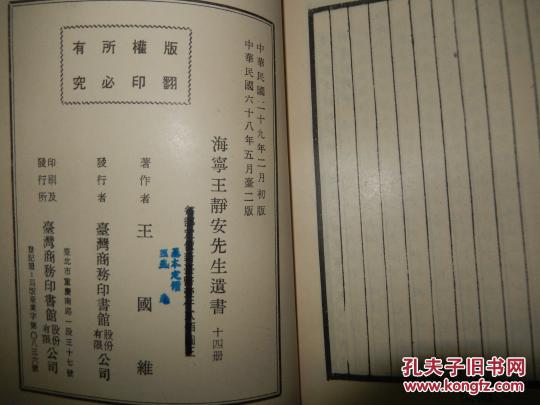 中華民國二十九年二月初版
中華民國六十八年五月臺二版
海寧王靜安先生遺書 十四册
基本定價
著作者 王國維
發行者 臺灣商務印書館股份有限公司
印刷及發行所 臺灣商務印書館股份有限公司
臺北市重慶南路一段三十七號
登記證：局版臺業字第〇八三六號
版權所有
翻印必究
孔夫子旧书网
www.kongfz.com